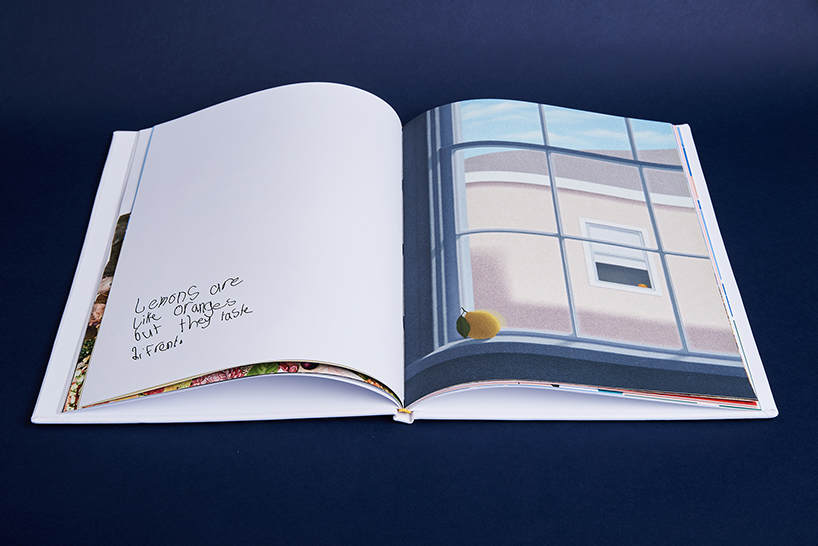 Lemons are
Like oranges
but they taste
difrent.